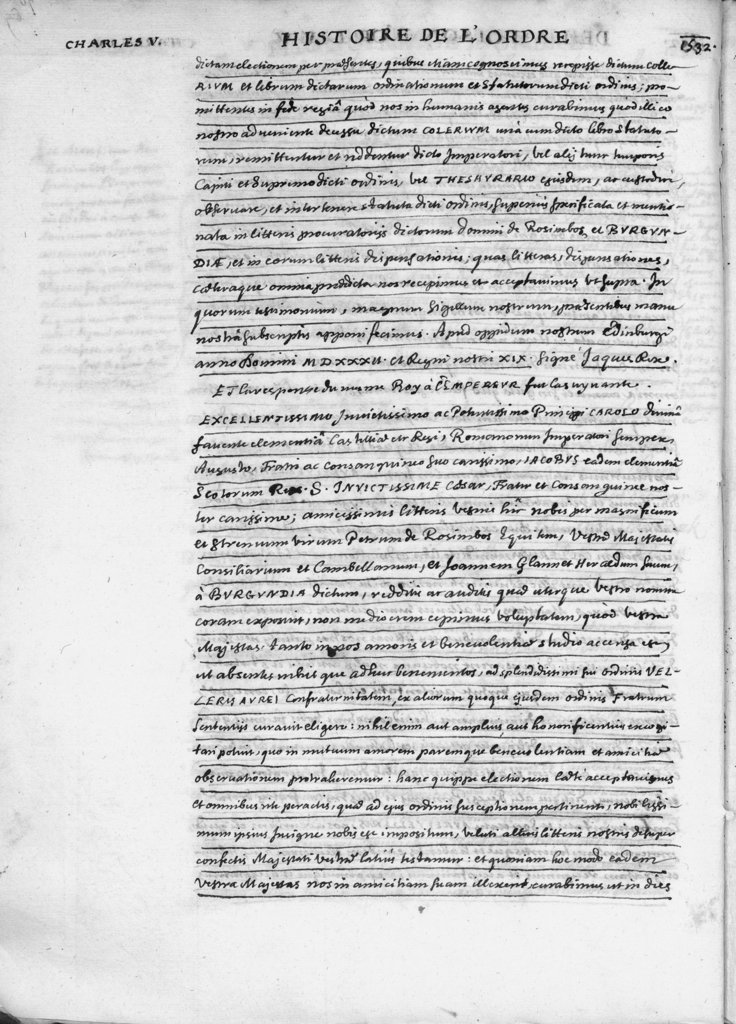 CHARLES V.
HISTOIRE DE L'ORDRE
1532.
dictam electionem per præsentes, quibus etiam cognoscimus recepisse dictum Colle-
RIUM et librum dictarum ordinationum et Statutorum dicti ordinis; pro-
mittentes in fide regiâ quòd nos in humanis agentes curabimus quòd illico
nostro adveniente decessu dictum COLERIUM unà cum dicto libro Statuto-
rum, remittentur et reddentur dicto Imperatori, vel alij tunc temporis
Capiti et Supremo dicti ordinis, vel THESAURARIO ejusdem, ac custodiri,
observare, et intertenere statuta dicti ordinis, superius specificata et mentio-
nata in litteris procuratorijs dictorum domini de Rosimbos et BURGUN-
DIÆ, et in eorum litteris dispensationis; quas litteras, dispensationes,
cæteraque omnia prædicta nos recepimus et acceptavimus ut supra. In
quorum testimonium, magnum sigillum nostrum, præsentibus manu
nostrâ subscriptis apponi fecimus. Apud oppidum nostrum Edinburgi
anno Domini MDXXXII. et Regni nostri XIX. Signé Jaques Rex.
ET la response du mesme Roy à l'EMPEREUR fut la suyvante.
EXCELLENTISSIMO Invictissimo ac Potentissimo Principi CAROLO divinâ
favente clementiâ Castiliæ etc Regi, Romanorum Imperatori semper
Augusto, Fratri ac Consanguineo suo carissimo, IACOBUS eadem clementiâ
Scotorum Rex. S. INVICTISSIME Cæsar, Frater et Consanguinee nos-
ter carissime; amicissimis litteris vestris hîc nobis per magnificum
et strenuum virum Petrum de Rosimbos Equitem, Vestræ Majestatis
Consiliarium et Cambellanum, et Joannem Glannet Heraldum suum,
à BURGUNDIA dictum, redditis ac auditis quæ uterque vestro nomine
coram exposuit, non mediocrem cepimus voluptatem, quòd vestra
Majestas tanto in nos amoris et benevolentiæ studio accensa est
ut absentes nihilque adhuc bene meritos, ad splendidissimi sui ordinis VEL-
LERIS AUREI Confraternitatem, ex aliorum quoque ejusdem ordinis Fratrum
sententijs curavit eligere: nihil enim aut amplius aut honorificentius excogi-
tari potuit, quo in mutuum amorem paremque benevolentiam et amicitiæ
observationem protraheremur: hanc quippe electionem læti acceptavimus
et omnibus ritè peractis, quæ ad ejus ordinis susceptionem pertinent, nobilissi-
mum ipsius Insigne nobis esse impositum, veluti alijs litteris nostris desuper
confectis Majestati vestræ latiùs testamur: et quoniam hoc modo eadem
Vestra Majestas nos in amicitiam suam illexerit, curabimus ut in dies